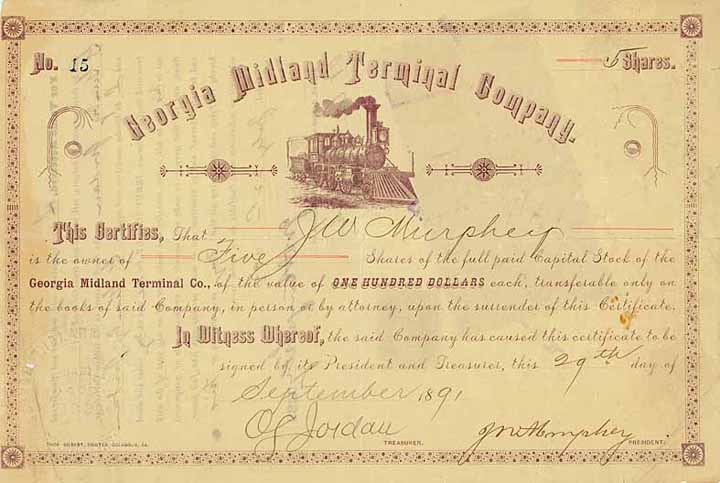 No. 15 5 Shares.
Georgia Midland Terminal Company.
This Certifies, That J W Murphey
is the owner of Five Shares of the full paid Capital Stock of the
Georgia Midland Terminal Co., of the value of ONE HUNDRED DOLLARS each, transferable only on
the books of said Company, in person or by attorney, upon the surrender of this Certificate.
In Witness Whereof, the said Company has caused this certificate to be
signed by its President and Treasurer, this 29th day of
September 1891
O C Jordan TREASURER. PRESIDENT.
THOS. GILBERT, PRINTER, COLUMBUS, GA.